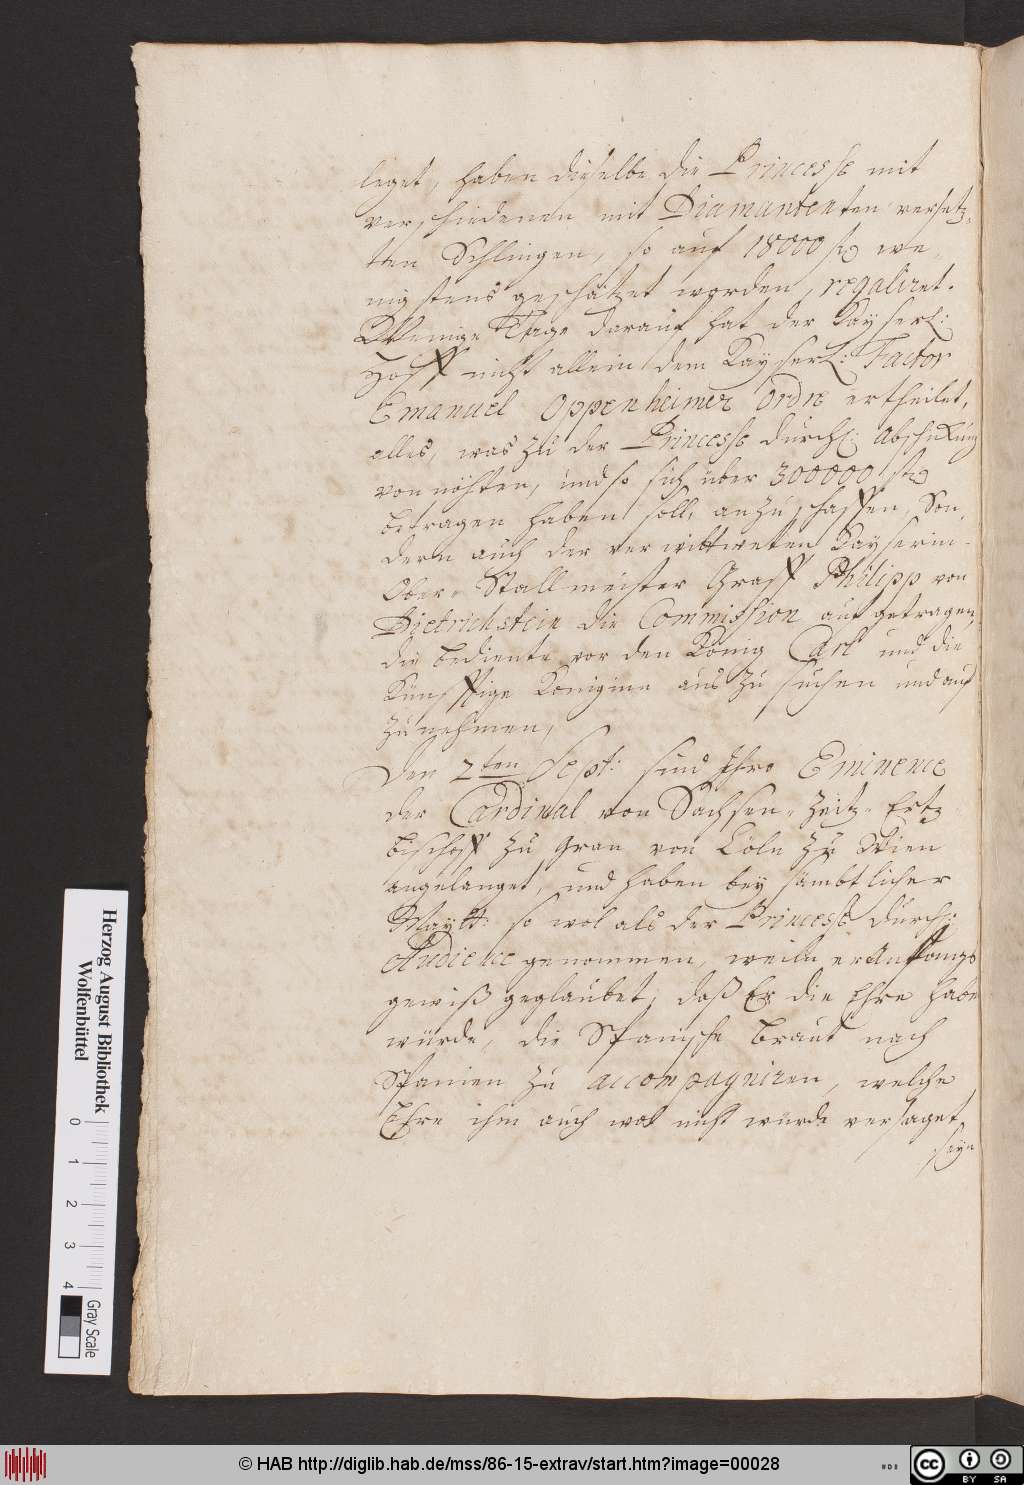 leget, haben dieselbe die Princesse mit
verschiedenen mit Diamanten versetz-
ten Schlingen, so auf 18000 fl we-
nigstens geschätzet worden, regaliret.
Wenige Tage darauf hat der Kayserl:
Hoff nicht allein dem Kayserl: Factor
Emanuel Oppenheimer Ordre ertheilet,
alles, was zu der Princesse Durchl: Abschickung
vonnöhten, und so sich über 300000 fl
betragen haben soll, anzuschaffen, Son-
dern auch der verwittweten Kayserin-
Ober-Stallmeister Graff Philipp von
Dietrichstein die Commission aufgetragen,
die bediente vor den König Carl und die
Künfftige Königinn aus zu suchen und auf
zunehmen,
Den 2ten Sept: sind Ihro Eminence
der Cardinal von Sachsen-Zeitz-Ertz
bischoff zu Gran von Cöln zu Wien
angelanget, und haben bey sämbtlicher
Maytt: so wol als der Princesse Durchl:
Audience genommen, weiln er Anfangs
gewiß geglaubet, daß Er die Ehre haben
würde, die Spanische Braut nach
Spanien zu accompagniren, welche
Ehre ihm auch wol nicht würde versaget
seyn
Herzog August Bibliothek
Wolfenbüttel
0 1 2 3 4
Gray Scale
© HAB http://diglib.hab.de/mss/86-15-extrav/start.htm?image=00028
cc BY SA